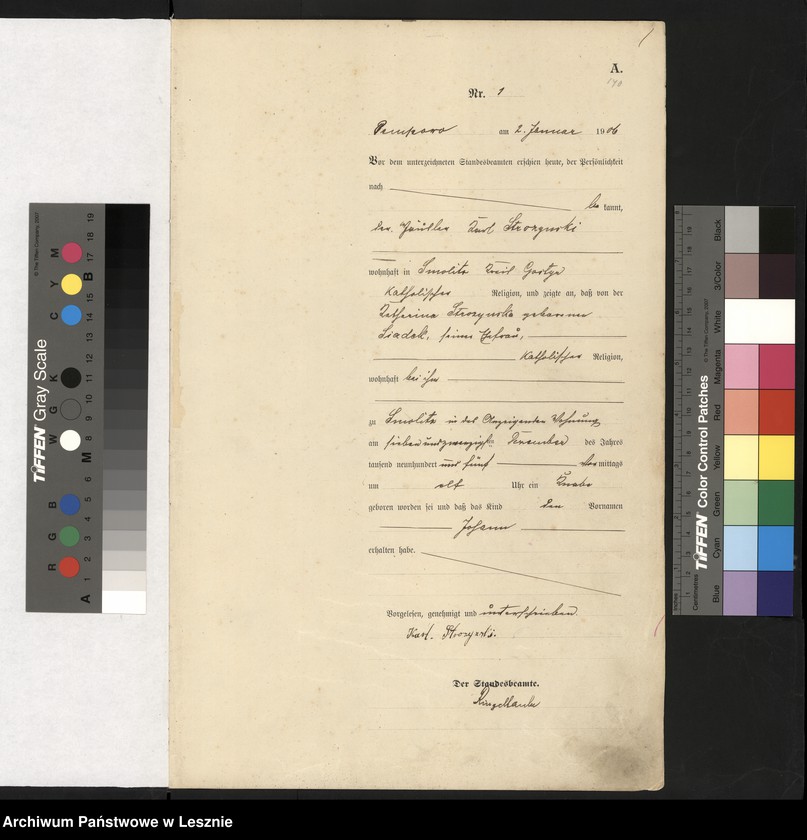 A.
140
Nr. 1
Pempowo am 2. Januar 1906
Vor dem unterzeichneten Standesbeamten erschien heute, der Persönlichkeit
nach
be kannt,
der Häusler Karl Strozynski
wohnhaft in Smolitz Kreis Gostyn
katholischer Religion, und zeigte an, daß von der
Katharina Strozynska geborenen
Siadek, seiner Ehefrau,
katholischer Religion,
wohnhaft bei ihm
zu Smolitz in des Anzeigenden Wohnung
am siebenundzwanzigsten Dezember des Jahres
tausend neunhundert und fünf Vor mittags
um elf Uhr ein Knabe
geboren worden sei und daß das Kind den Vornamen
Johann
erhalten habe.
Vorgelesen, genehmigt und unterschrieben
Karl
Der Standesbeamte.
TIFFEN Gray Scale
© The Tiffen Company, 2007
R G B W G K C Y M
A 1 2 3 4 5 6 M 8 9 10 11 12 13 14 15 B 17 18 19
TIFFEN Color Control Patches
© The Tiffen Company, 2007
Centimetres
Inches
Blue
Cyan
Green
Yellow
Red
Magenta
White
3/Color
Black
Archiwum Państwowe w Lesznie